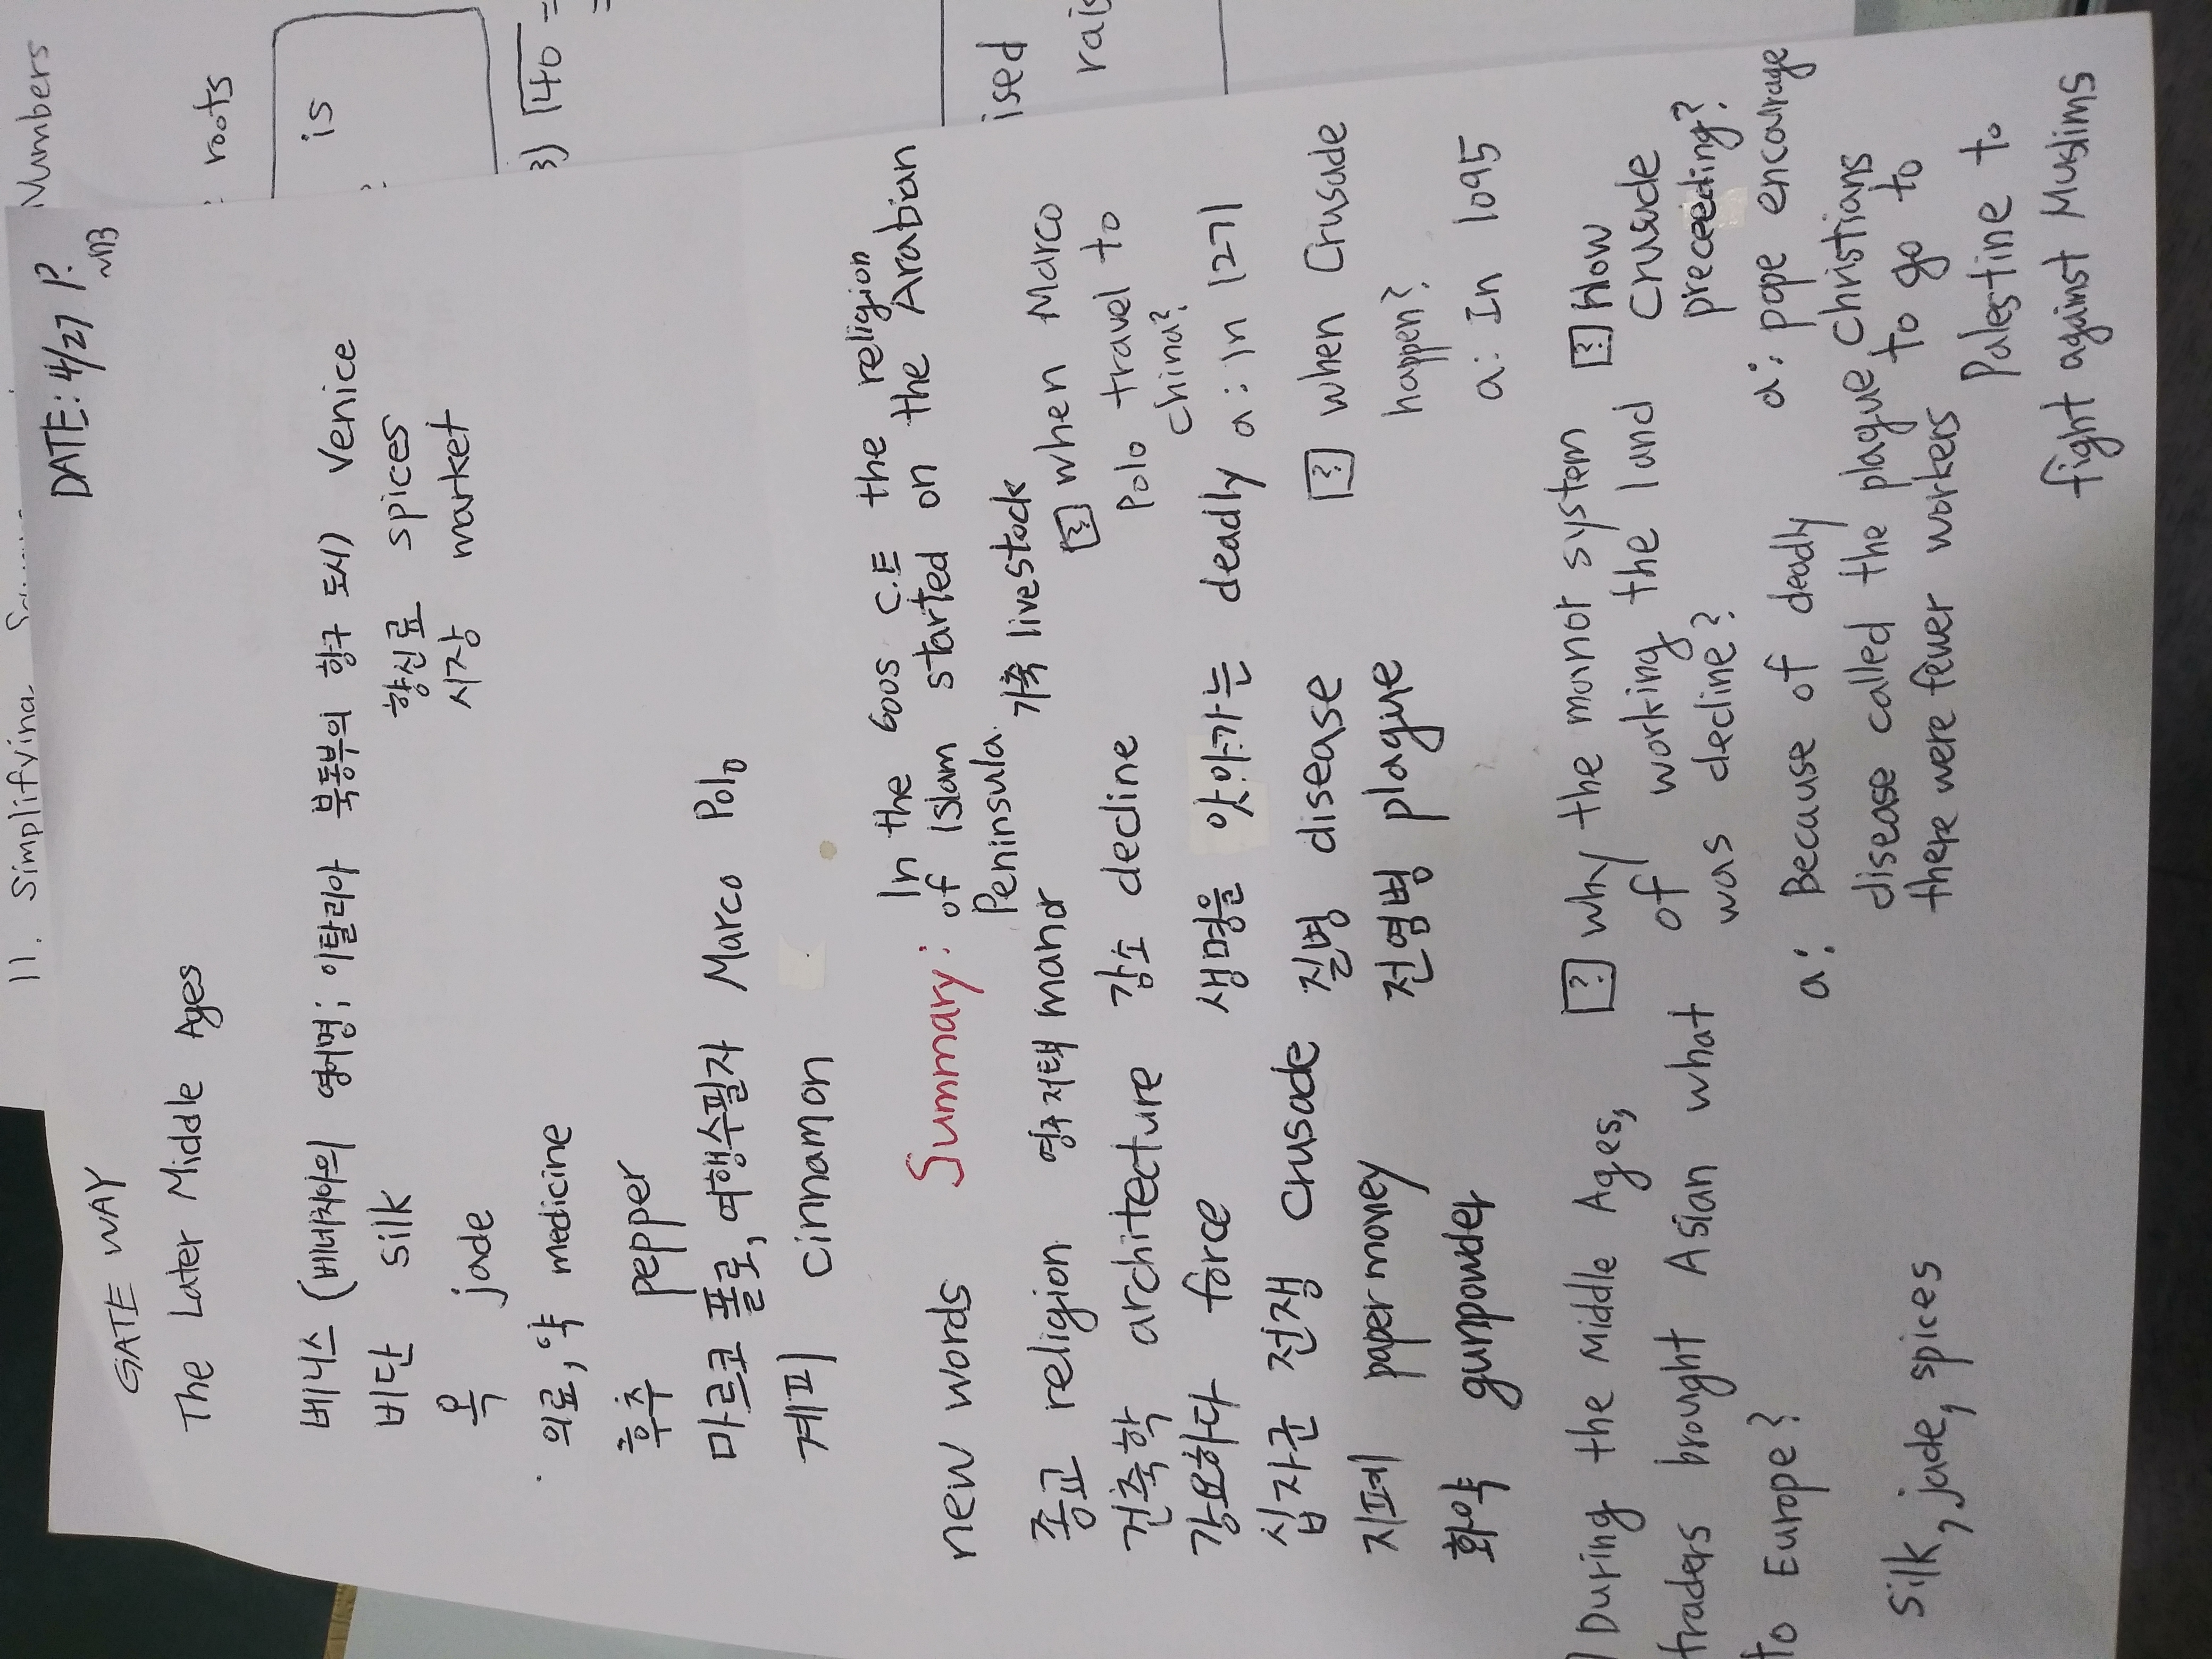 11. Simplifying
Numbers
roots
is
3) √40 =
ised
rais
GATE WAY
DATE: 4/27 P.
The Later Middle Ages
베니스 (베네치아의 영어명; 이탈리아 북동부의 항구 도시) Venice
비단 silk
향신료 spices
옥 jade
시장 market
의료, 약 medicine
후추 pepper
마르코 폴로, 여행수필자 Marco Polo
계피 cinnamon
new words
Summary: In the 600s C.E the religion
of Islam started on the Arabian
Peninsula.
종교 religion 영주저택 manor 가축 livestock
건축학 architecture 감소 decline
강요하다 force 생명을 앗아가는 deadly
십자군 전쟁 crusade 질병 disease
지폐 paper money 전염병 plague
화약 gunpowder
? when Marco
Polo travel to
China?
a: In 1271
? when Crusade
happen?
a: In 1095
During the Middle Ages,
traders brought Asian what
to Europe?
silk, jade, spices
? why the manor system
of working the land
was decline?
a: Because of deadly
disease called the plague
there were fewer workers
? How
Crusade
preceeding?
a: pope encourage
Christians
to go to
Palestine to
fight against Muslims